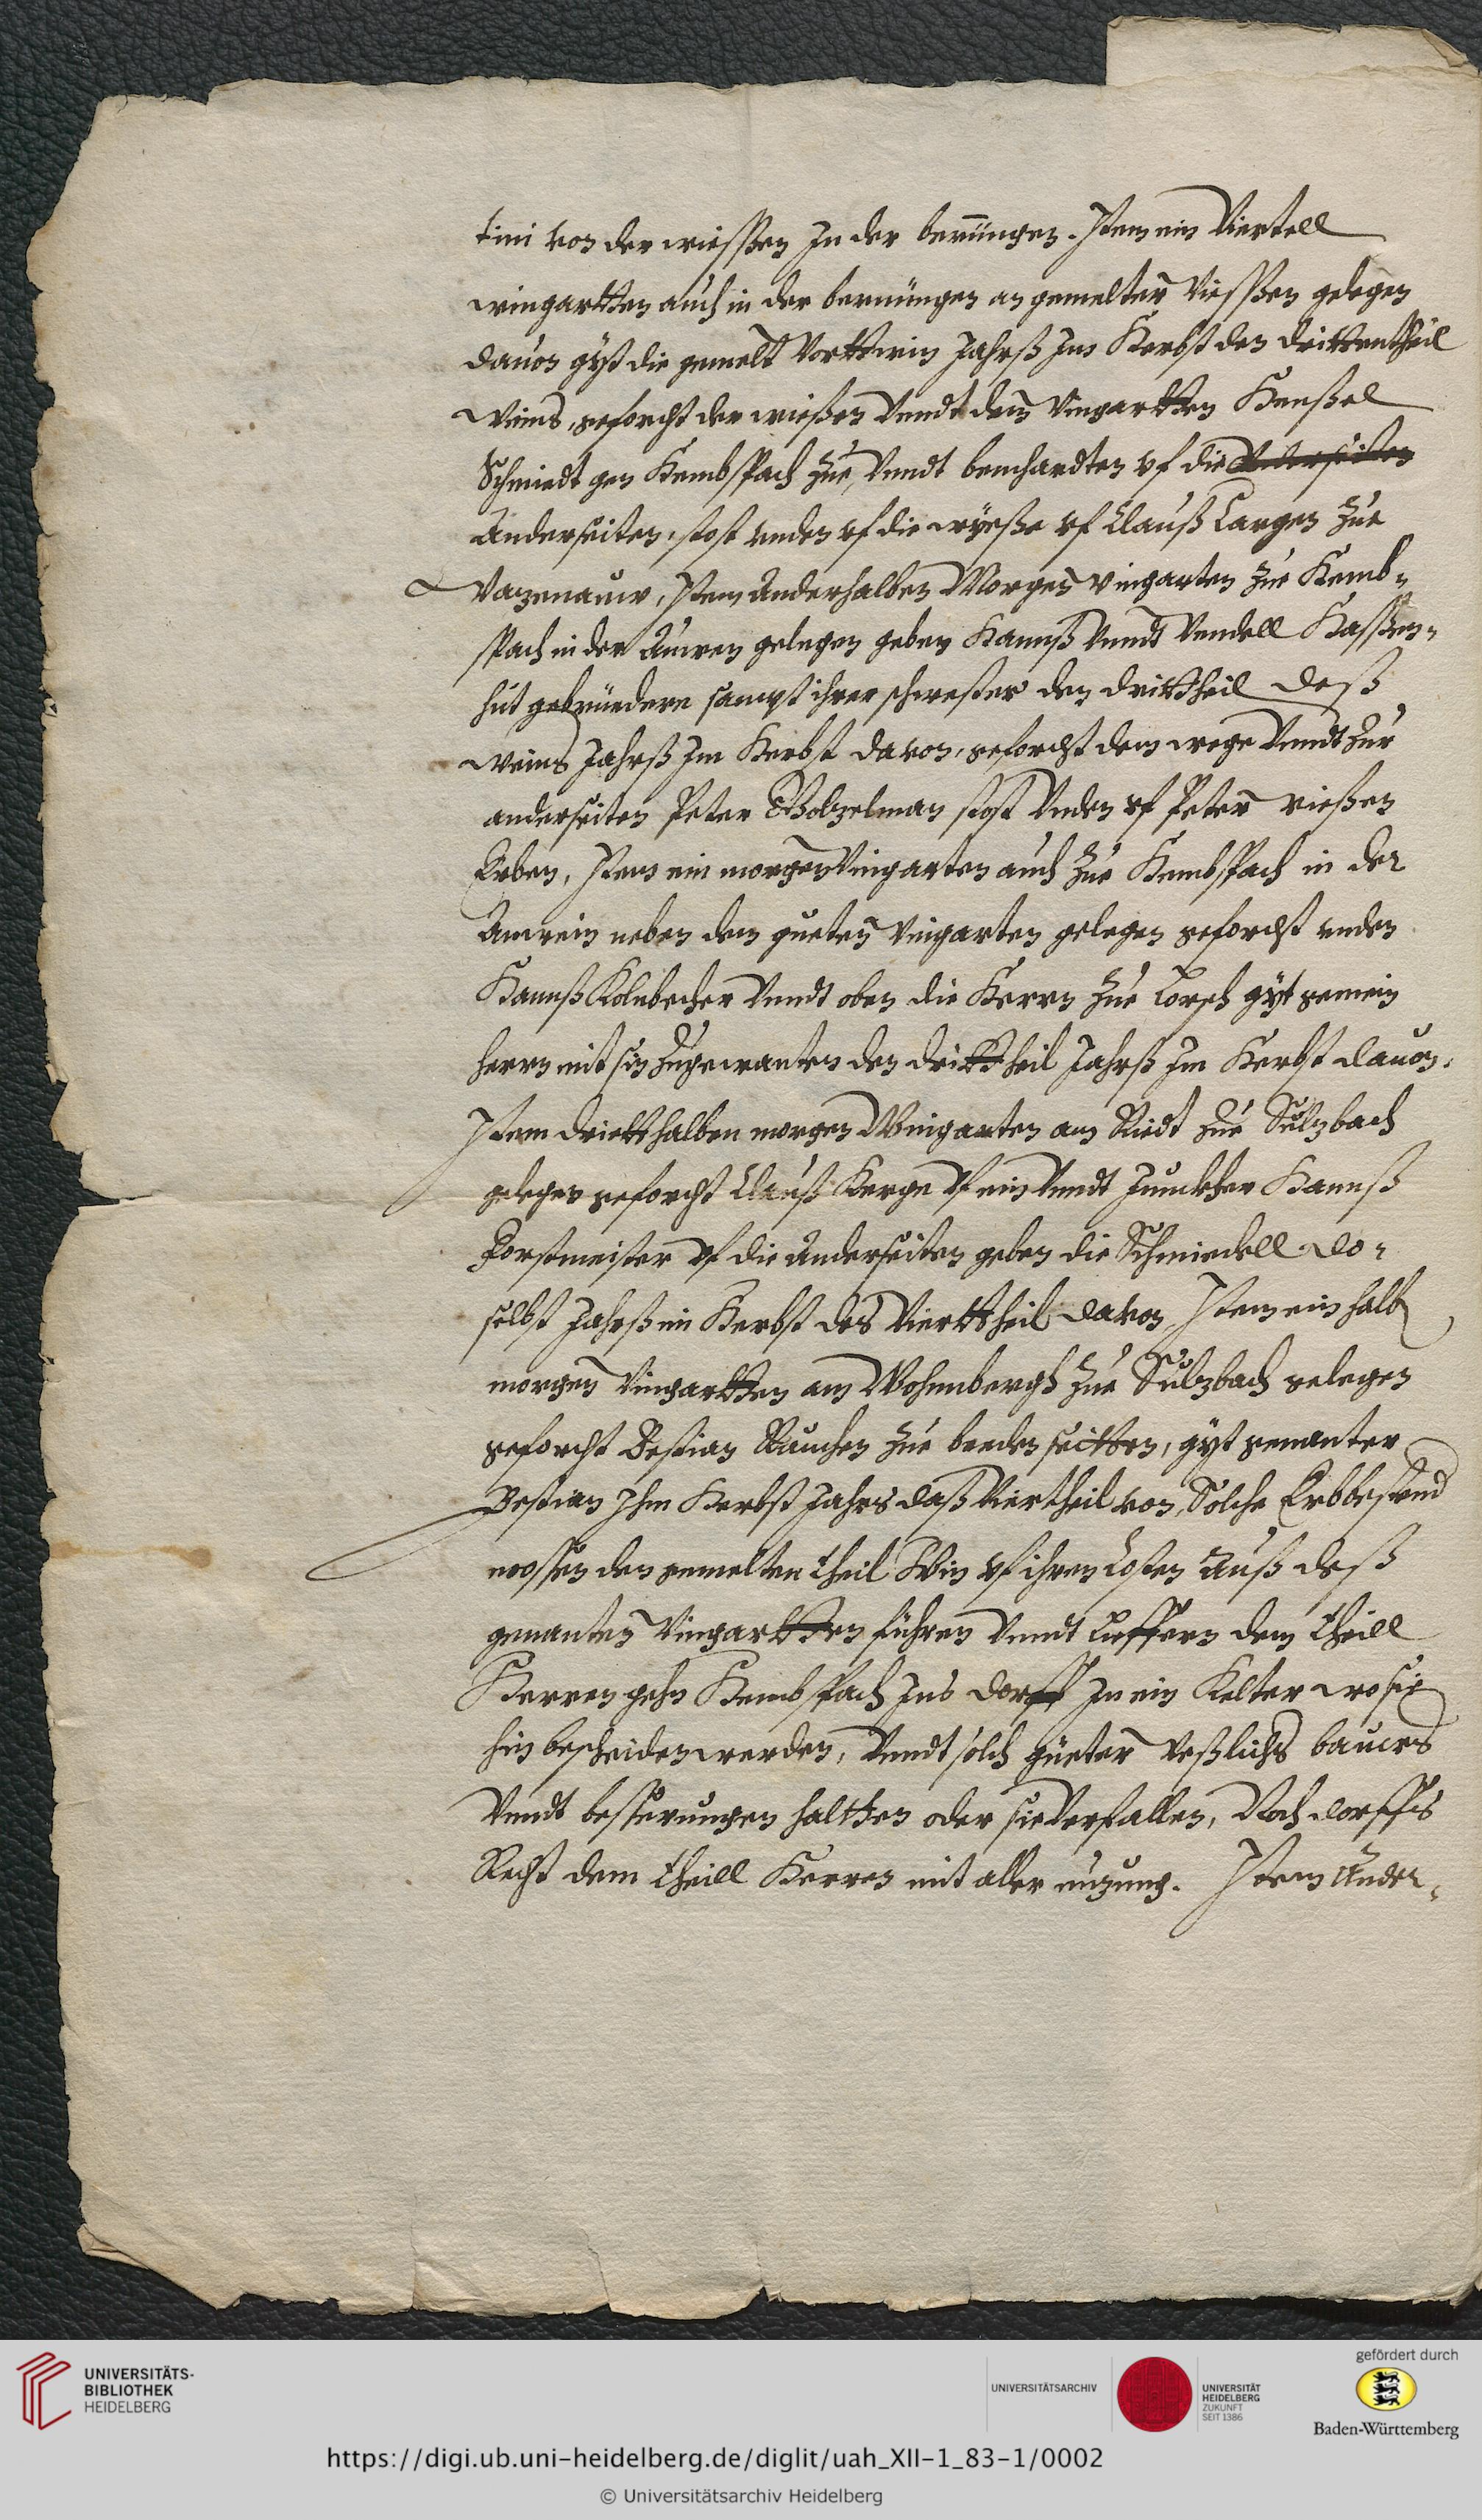 tini von der wiessen In der bernüngen. Item ein Viertell
wingartten auch in der bernüngen an gemelter Viessen gelegen
dauon gyst die gemelt Jahrß Im Herbst den drittentheil
Weins, geforcht der wießen Vnndt dem Vingartten Henßel
Schmiedt gen Hembspach Zue, Vnndt bernhardten vf die
Anderseiten, stost vnden vf die wyeße vf Clauß Langen Zue
Item Anderhalben Morgen Vingarten Zue Hemb-
spach in der Auwen gelegen geben Hannß Vnndt Vendell Hassen-
hut gebrüedere sampt ihrer schwester den drittheil deß
Weins Jahrß Im Herbst davon, geforcht dem wege Vnndt Zur
anderseiten Peter Wolzelman stost Vnden vf Peter rießen
Erben, Item ein morgen Vingarten auch Zue Hembspach in der
Auwein neben dem gueten Vingarten gelegen geforcht vnden
Hannß Kolnbecher Vnndt oben die Herrn Zue Lorsch gyt gemein
herrn mit sin Zugewanten den drittheil Jahrß Im Herbst dauon.
Item dritthalben morgen Wingarten am Riedt Zue Sulzbach
gelegen geforcht Clauß Herge Vf ein Vnndt Junckher Hannß
Forstmeister vf die Anderseiten geben die Schmiedell do-
selbst Jahrß im Herbst des Vierttheil davon, Item ein halb
morgen Vingartten am Wohnnbergh Zue Sulzbach gelegen
geforcht Bestian Rauchen Zue beeden seitten, gyt genanter
Bestian Ihm Herbst Jahrs daß Viertheil von, Solche Erbbestend
mossen den gemelten theil Win vf ihren Costen auß deß
genanten Vingartten führen Vnndt Lieffern dem theill
Herren gehn Hembspach Ins dorff In ein Kelter wo sie
hin bescheiden werden, Vnndt solch güeter beßlichs bauens
Vnndt besserungen haltten oder sie Verfallen, Noch dorffs
Recht dem theill Herren mit aller nuzung. Item Ander-
UNIVERSITÄTS-
BIBLIOTHEK
HEIDELBERG
UNIVERSITÄTSARCHIV
UNIVERSITÄT
HEIDELBERG
ZUKUNFT
SEIT 1386
gefördert durch
Baden-Württemberg
https://digi.ub.uni-heidelberg.de/diglit/uah_XII-1_83-1/0002
© Universitätsarchiv Heidelberg